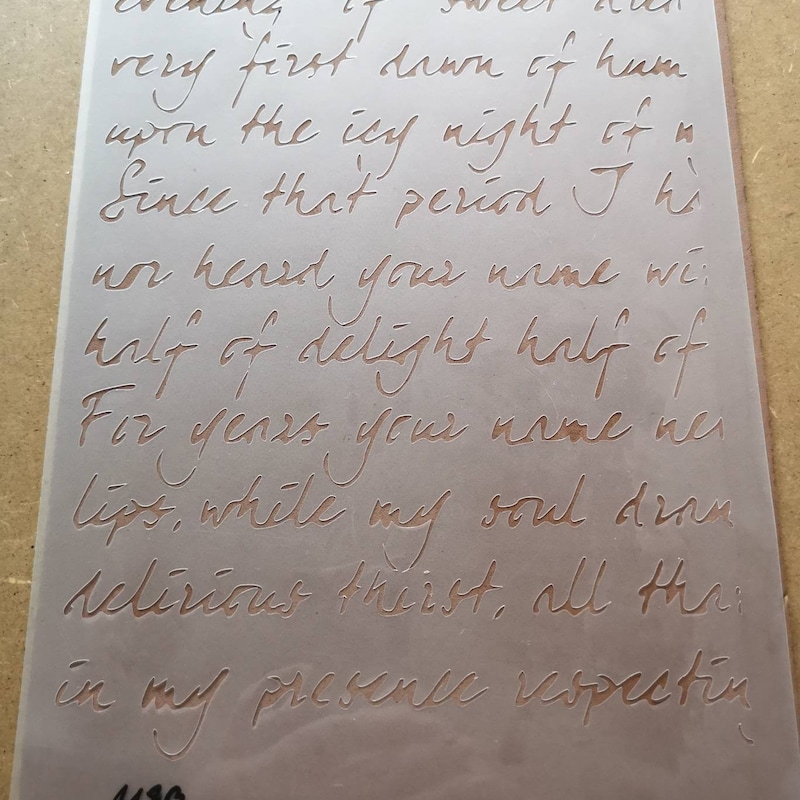 evening of sweet
very first dawn of hum
upon the icy night of n
Since that period I ha
nor heard your name wi
half of delight half of
For years your name nev
lips, while my soul dran
delirious thirst, all tha
in my presence respectin